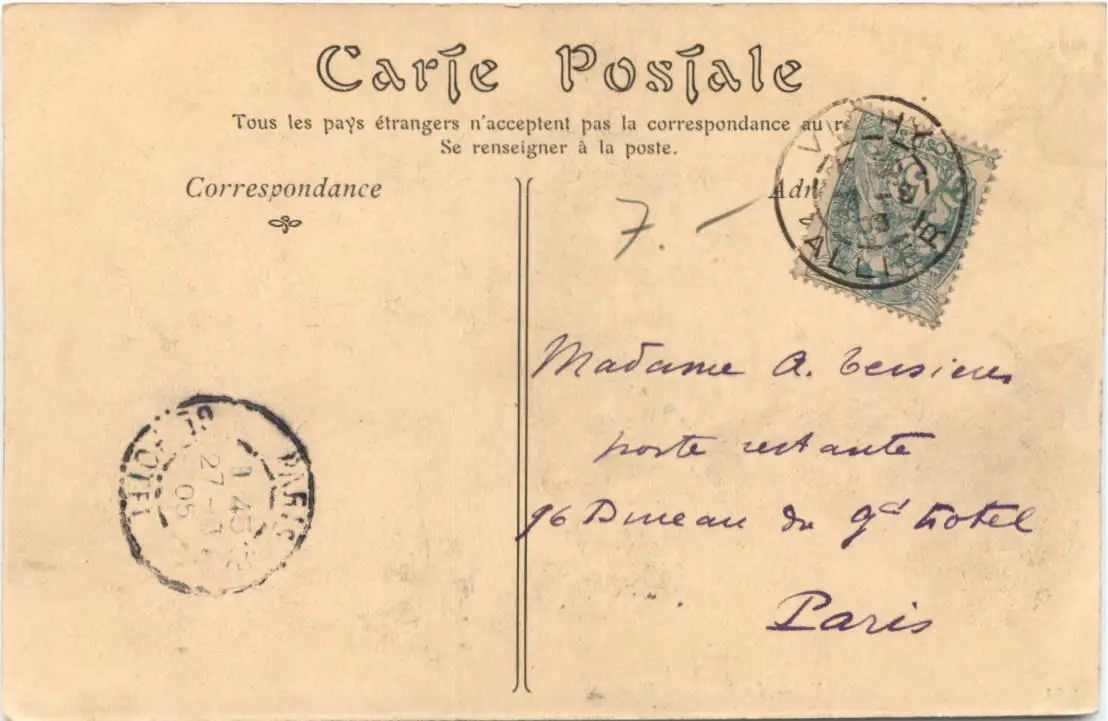 Carte Postale
Tous les pays étrangers n'acceptent pas la correspondance au
Se renseigner à la poste.
Correspondance
7.-
Madame A.
poste restante
96 Bureau du gd hotel
Paris
ALLIER
PARIS
27
05